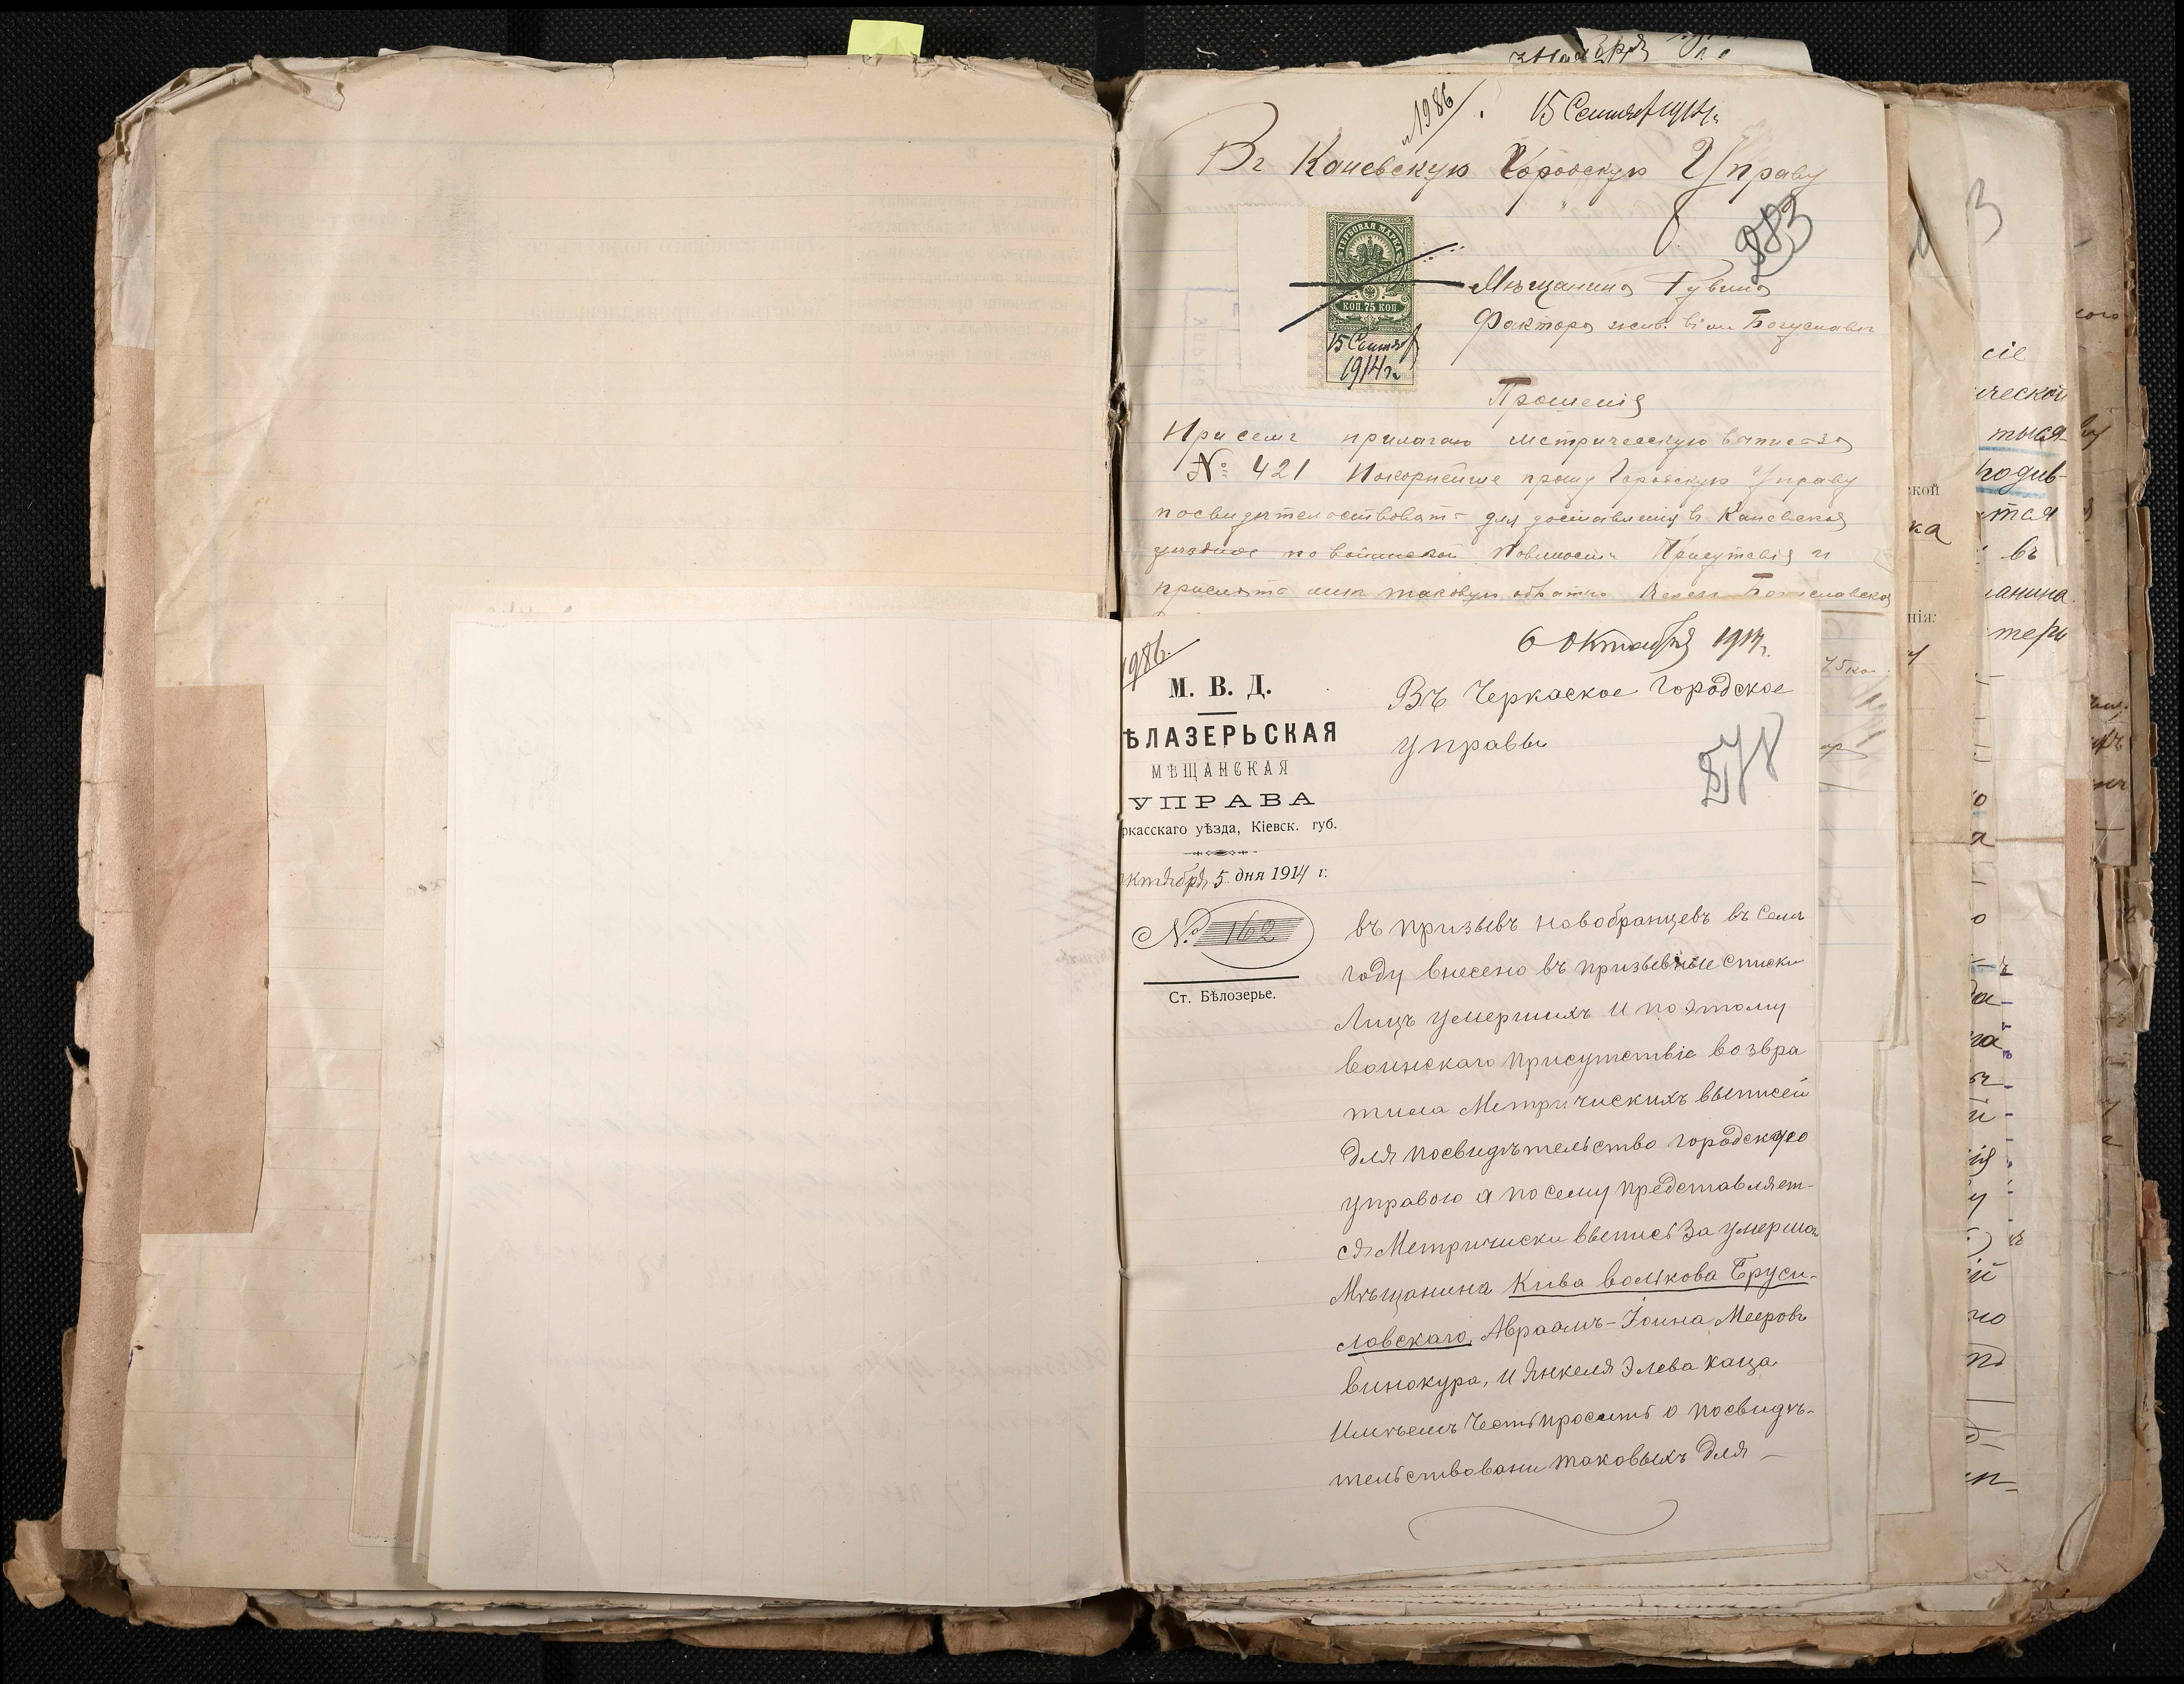 1986
15 Сентяб 1914 г.
Въ Каневскую Городскую Управу
283
ГЕРБОВАЯ МАРКА
КОП. 75 КОП.
15 Сентяб
1914 г.
Мѣщанина Рувина
Фактора жив. в м. Богуславѣ
Прошенія
При семъ прилагаю метрическую выпись за
№ 421 Покорнейше прошу Городскую Управу
посвидѣтельствовать для доставленія въ Каневская
уездное по воинской Повиности Присутсвія и
прислать мнѣ таковую обратно Богуславская
1986.
6 Октября 1914 г.
М. В. Д.
ѢЛАЗЕРЬСКАЯ
МѢЩАНСКАЯ
УПРАВА
ркасскаго уѣзда, Кіевск. губ.
октября 5 дня 1914 г.
№ 162
Ст. Бѣлозерье.
Въ Черкаское Городское
Управы
278
въ призывъ новобранцевъ въ семъ
году внесено въ призывные списки
Лицъ умершихъ и по этому
воинскаго присутствіе возвра
тила Метричискихъ выписей
для посвидѣтельство городскую
управою а по сему представляет-
ся Метричиски выписѣ за умерша
Мѣщанина Кива волькова Бруси-
ловскаго, Авраамъ-Іоина Мееровъ
винокура, и Янкеля Элева каца
Имѣемъ Честь просить о посвидѣ-
тельствовани таковыхъ для —